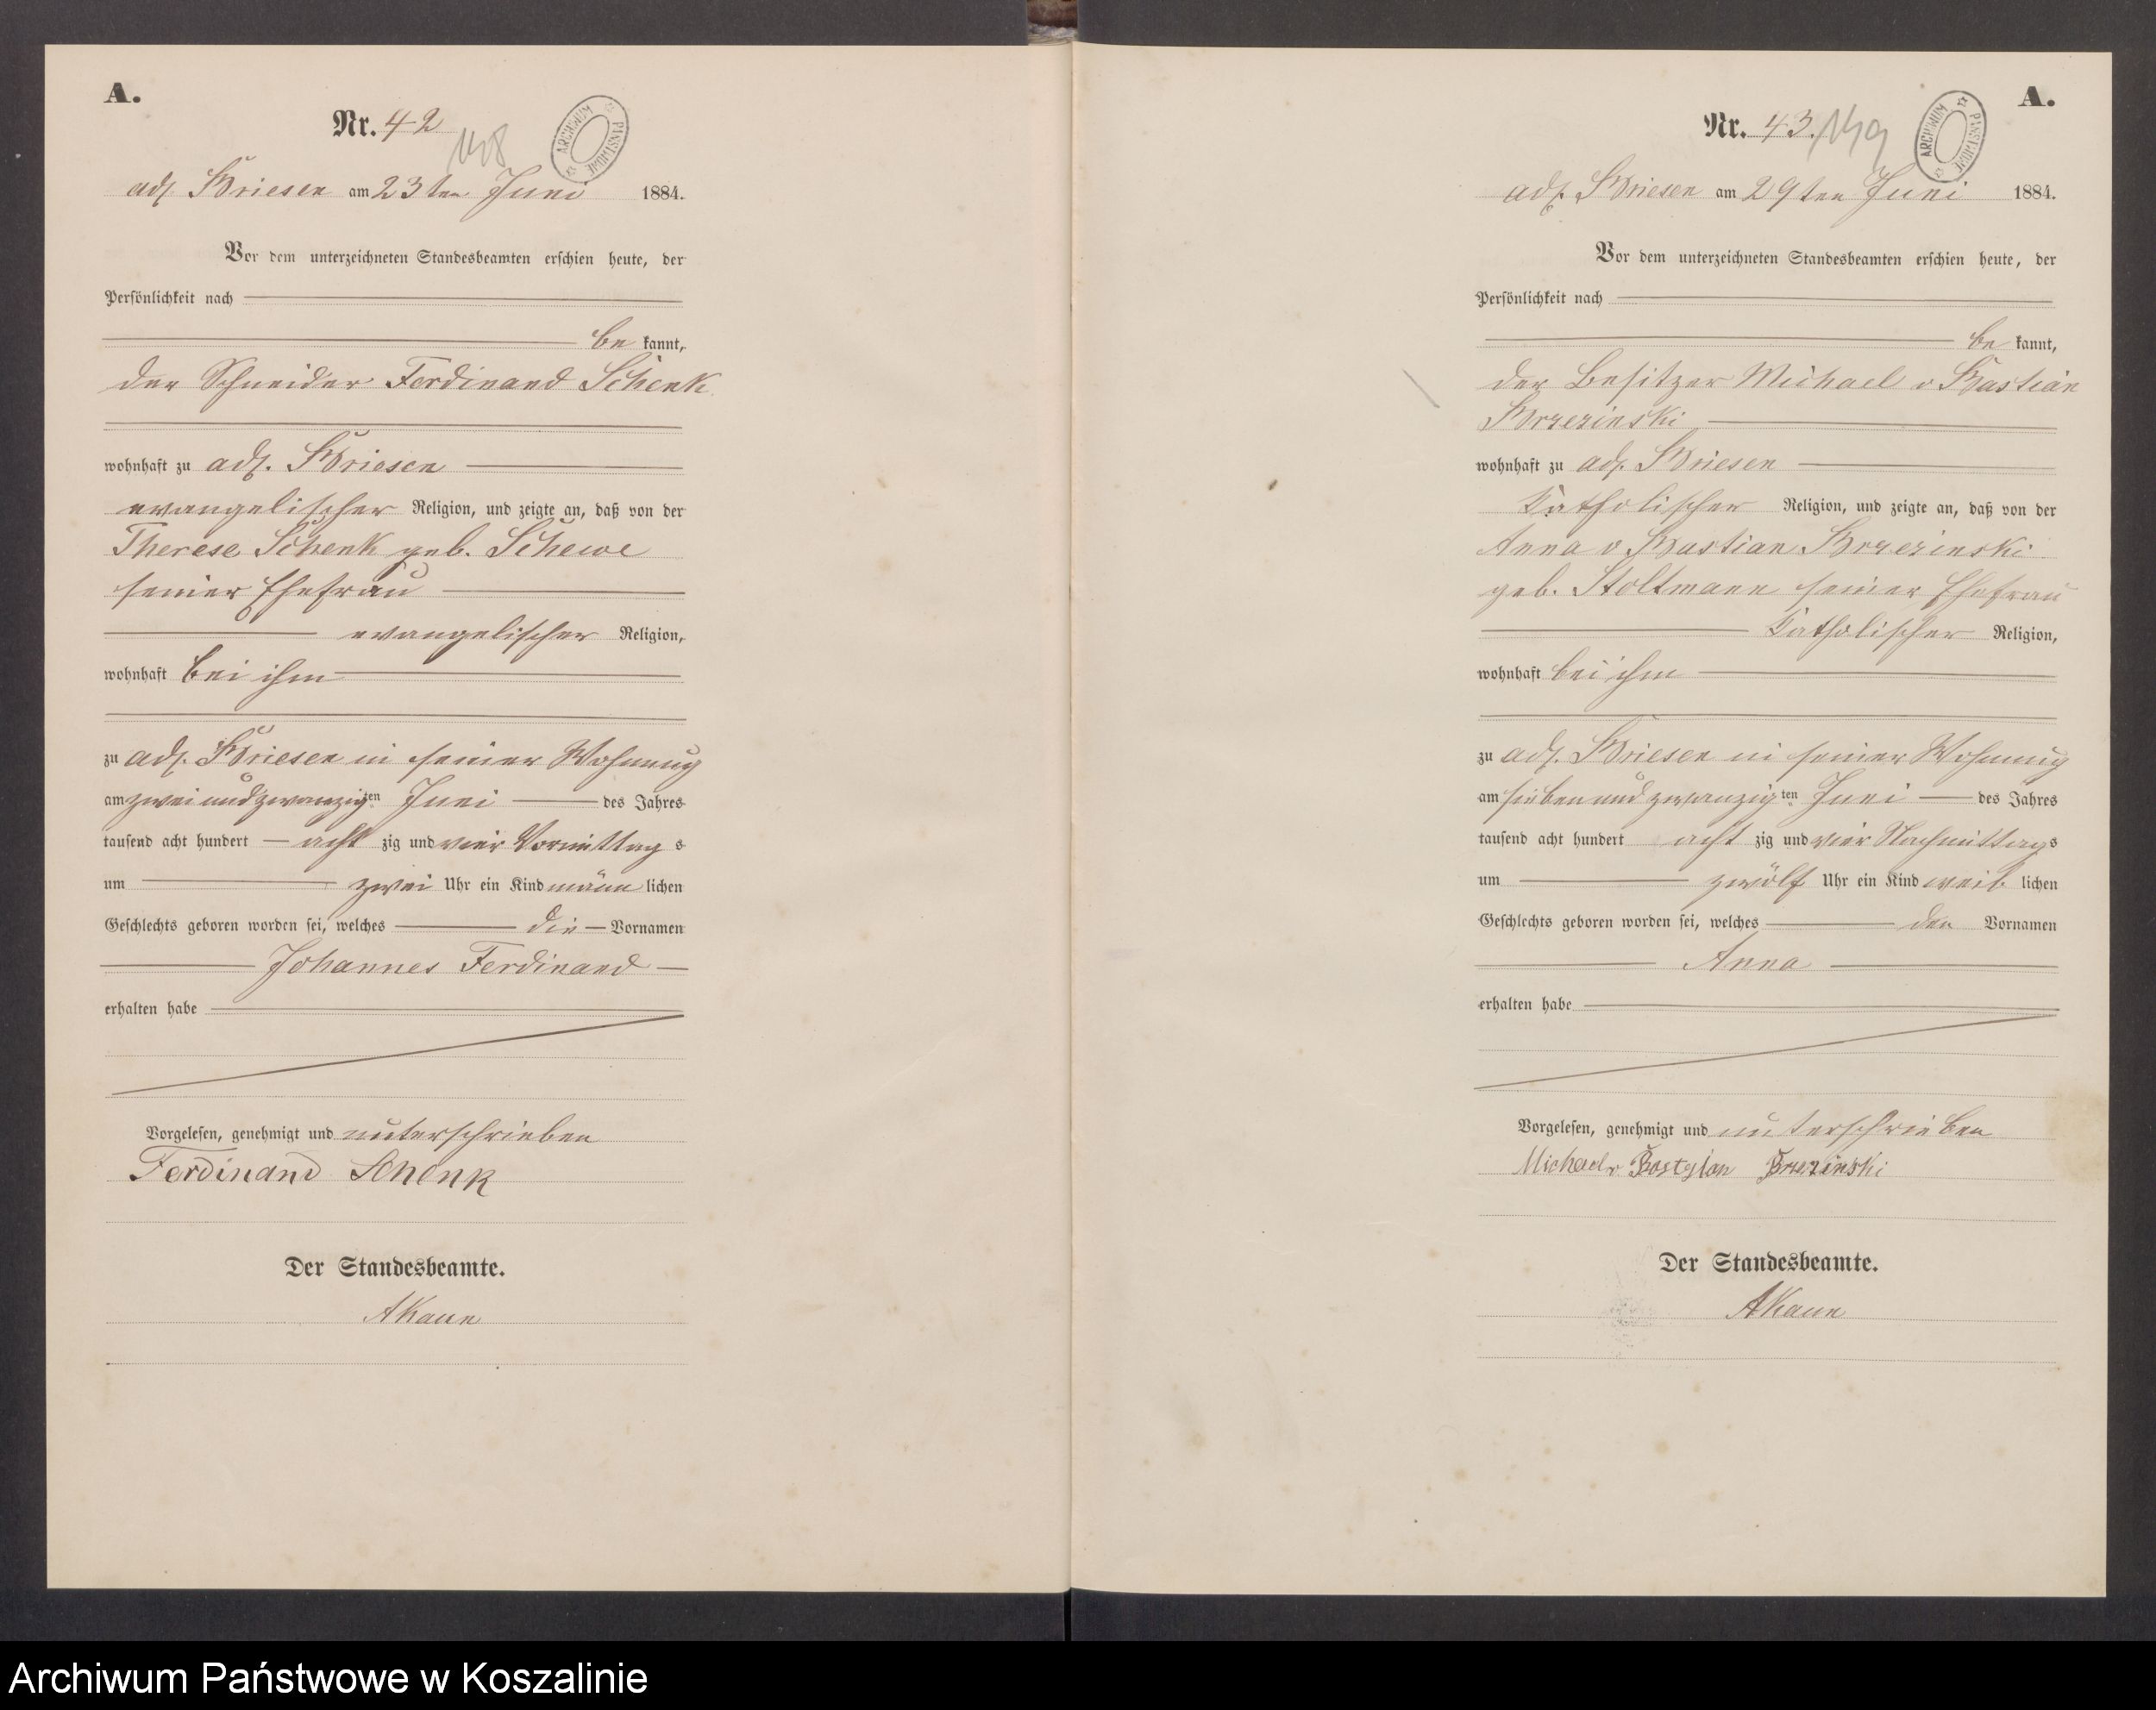 A.
Nr. 42
148
ARCHIWUM PAŃSTWOWE
adl. Briesen am 23ten Juni 1884.
Vor dem unterzeichneten Standesbeamten erschien heute, der
Persönlichkeit nach
be kannt,
der Schneider Ferdinand Schenk
wohnhaft zu adl. Briesen
evangelischer Religion, und zeigte an, daß von der
Therese Schenk geb. Schewe
seiner Ehefrau
evangelischer Religion,
wohnhaft bei ihm
zu adl. Briesen in seiner Wohnung
am zwei und zwanzigten Juni des Jahres
tausend acht hundert acht zig und vier Vormittag s
um zwei Uhr ein Kind männ lichen
Geschlechts geboren worden sei, welches die Vornamen
Johannes Ferdinand
erhalten habe
Vorgelesen, genehmigt und unterschrieben
Ferdinand Schenk
Der Standesbeamte.
AKaun
A.
Nr. 43.
149
ARCHIWUM PAŃSTWOWE
adl. Briesen am 29ten Juni 1884.
Vor dem unterzeichneten Standesbeamten erschien heute, der
Persönlichkeit nach
be kannt,
der Besitzer Michael v Bastian
Brzezinski
wohnhaft zu adl. Briesen
katholischer Religion, und zeigte an, daß von der
Anna v Bastian Brzezinski
geb. Stoltmann seiner Ehefrau
katholischer Religion,
wohnhaft bei ihm
zu adl. Briesen in seiner Wohnung
am sieben und zwanzigten Juni des Jahres
tausend acht hundert acht zig und vier Nachmittags
um zwölf Uhr ein Kind weib lichen
Geschlechts geboren worden sei, welches den Vornamen
Anna
erhalten habe
Vorgelesen, genehmigt und unterschrieben
Michael v Bastyian Brzezinski
Der Standesbeamte.
AKaun
Archiwum Państwowe w Koszalinie